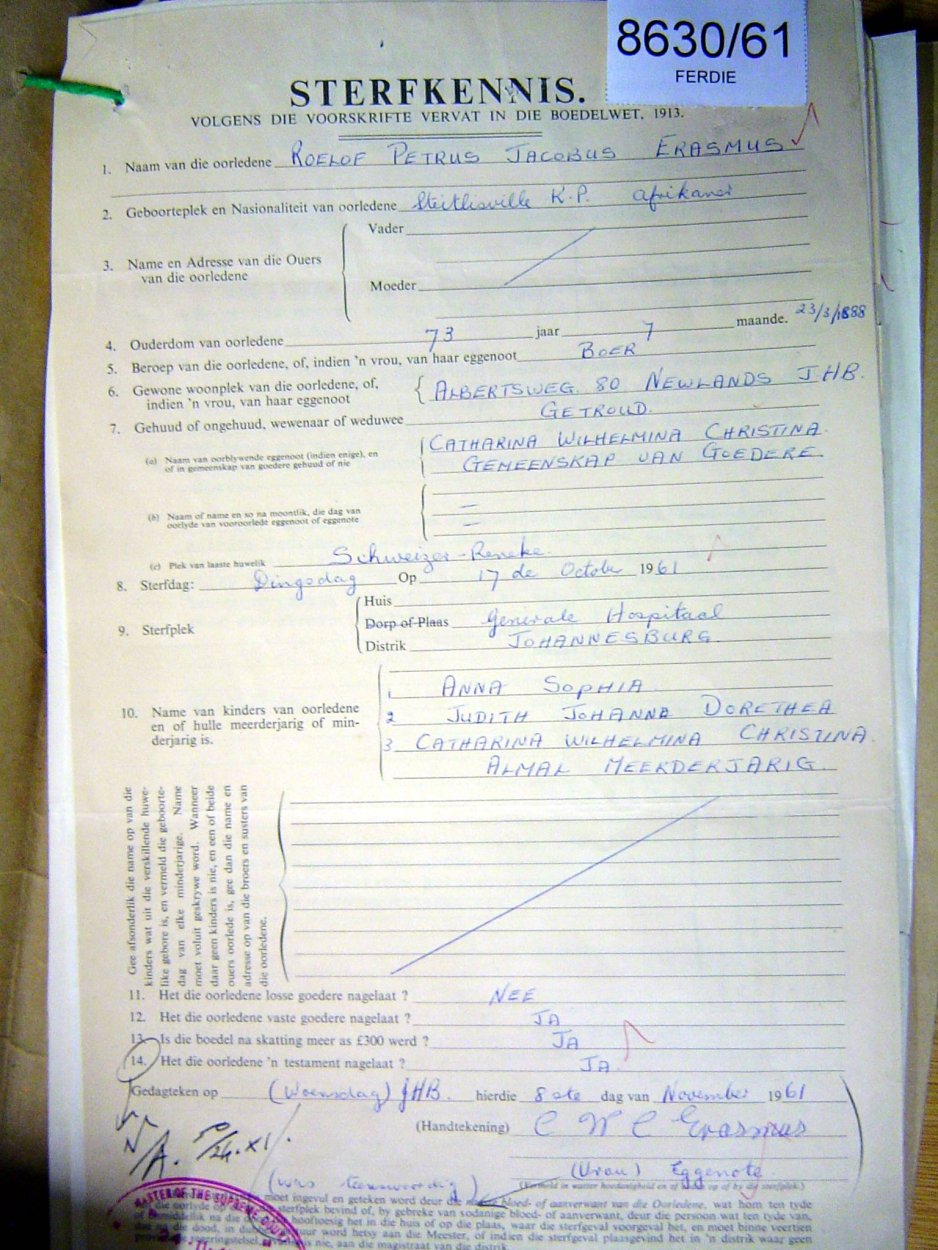 8630/61
FERDIE
STERFKENNIS.
VOLGENS DIE VOORSKRIFTE VERVAT IN DIE BOEDELWET, 1913.
1. Naam van die oorledene ROELOF PETRUS JACOBUS ERASMUS
2. Geboorteplek en Nasionaliteit van oorledene Steitlisville K.P. Afrikaner
Vader
3. Name en Adresse van die Ouers
van die oorledene
Moeder
4. Ouderdom van oorledene 73 jaar 7 maande. 23/3/1888
5. Beroep van die oorledene, of, indien 'n vrou, van haar eggenoot BOER
6. Gewone woonplek van die oorledene, of,
indien 'n vrou, van haar eggenoot
ALBERTSWEG. 80 NEWLANDS JHB.
7. Gehuud of ongehuud, wewenaar of weduwee GETROUD.
(a) Naam van oorblywende eggenoot (indien enige), en
of in gemeenskap van goedere gehuud of nie
CATHARINA WILHELMINA CHRISTINA.
GEMEENSKAP VAN GOEDERE.
(b) Naam of name en so na moontlik, die dag van
oorlyde van vooroorlede eggenoot of eggenote
(c) Plek van laaste huwelik Schweizer-Reneke.
8. Sterfdag: Dingsdag Op 17 de October 1961
Huis
9. Sterfplek Dorp of Plaas Generale Hospitaal
Distrik JOHANNESBURG.
1 ANNA SOPHIA
10. Name van kinders van oorledene
en of hulle meerderjarig of min-
derjarig is.
2 JUDITH JOHANNA DORETHEA
3 CATHARINA WILHELMINA CHRISTINA.
ALMAL MEERDERJARIG.
Gee afsonderlik die name op van die
kinders wat uit die verskillende huwe-
like gebore is, en vermeld die geboorte-
dag van elke minderjarige. Name
moet voluit geskrywe word. Wanneer
daar geen kinders is nie, en een of beide
ouers oorlede is, gee dan die name en
adresse op van die broers en susters van
die oorledene.
11. Het die oorledene losse goedere nagelaat ? NEE
12. Het die oorledene vaste goedere nagelaat ? JA
13. Is die boedel na skatting meer as £300 werd ? JA
14. Het die oorledene 'n testament nagelaat ? JA.
Gedagteken op (Woensdag) JHB. hierdie 8ste dag van November 1961
(Handtekening) C W C Erasmus
(Vrou) Eggenote.
N/A. 24.XI.
(was teenwoordig)
MASTER OF THE SUPREME COURT
moet ingevul en geteken word deur die bloed- of aanverwant van die Oorledene, wat hom ten tyde
sterfplek bevind of, by gebreke van sodanige bloed- of aanverwant, deur die persoon wat ten tyde van,
hooftoesig het in die huis of op die plaas, waar die sterfgeval voorgeval het, en moet binne veertien
word hetsy aan die Meester, of indien die sterfgeval plaasgevind het in 'n distrik waar geen
nie, aan die magistraat van die distrik.